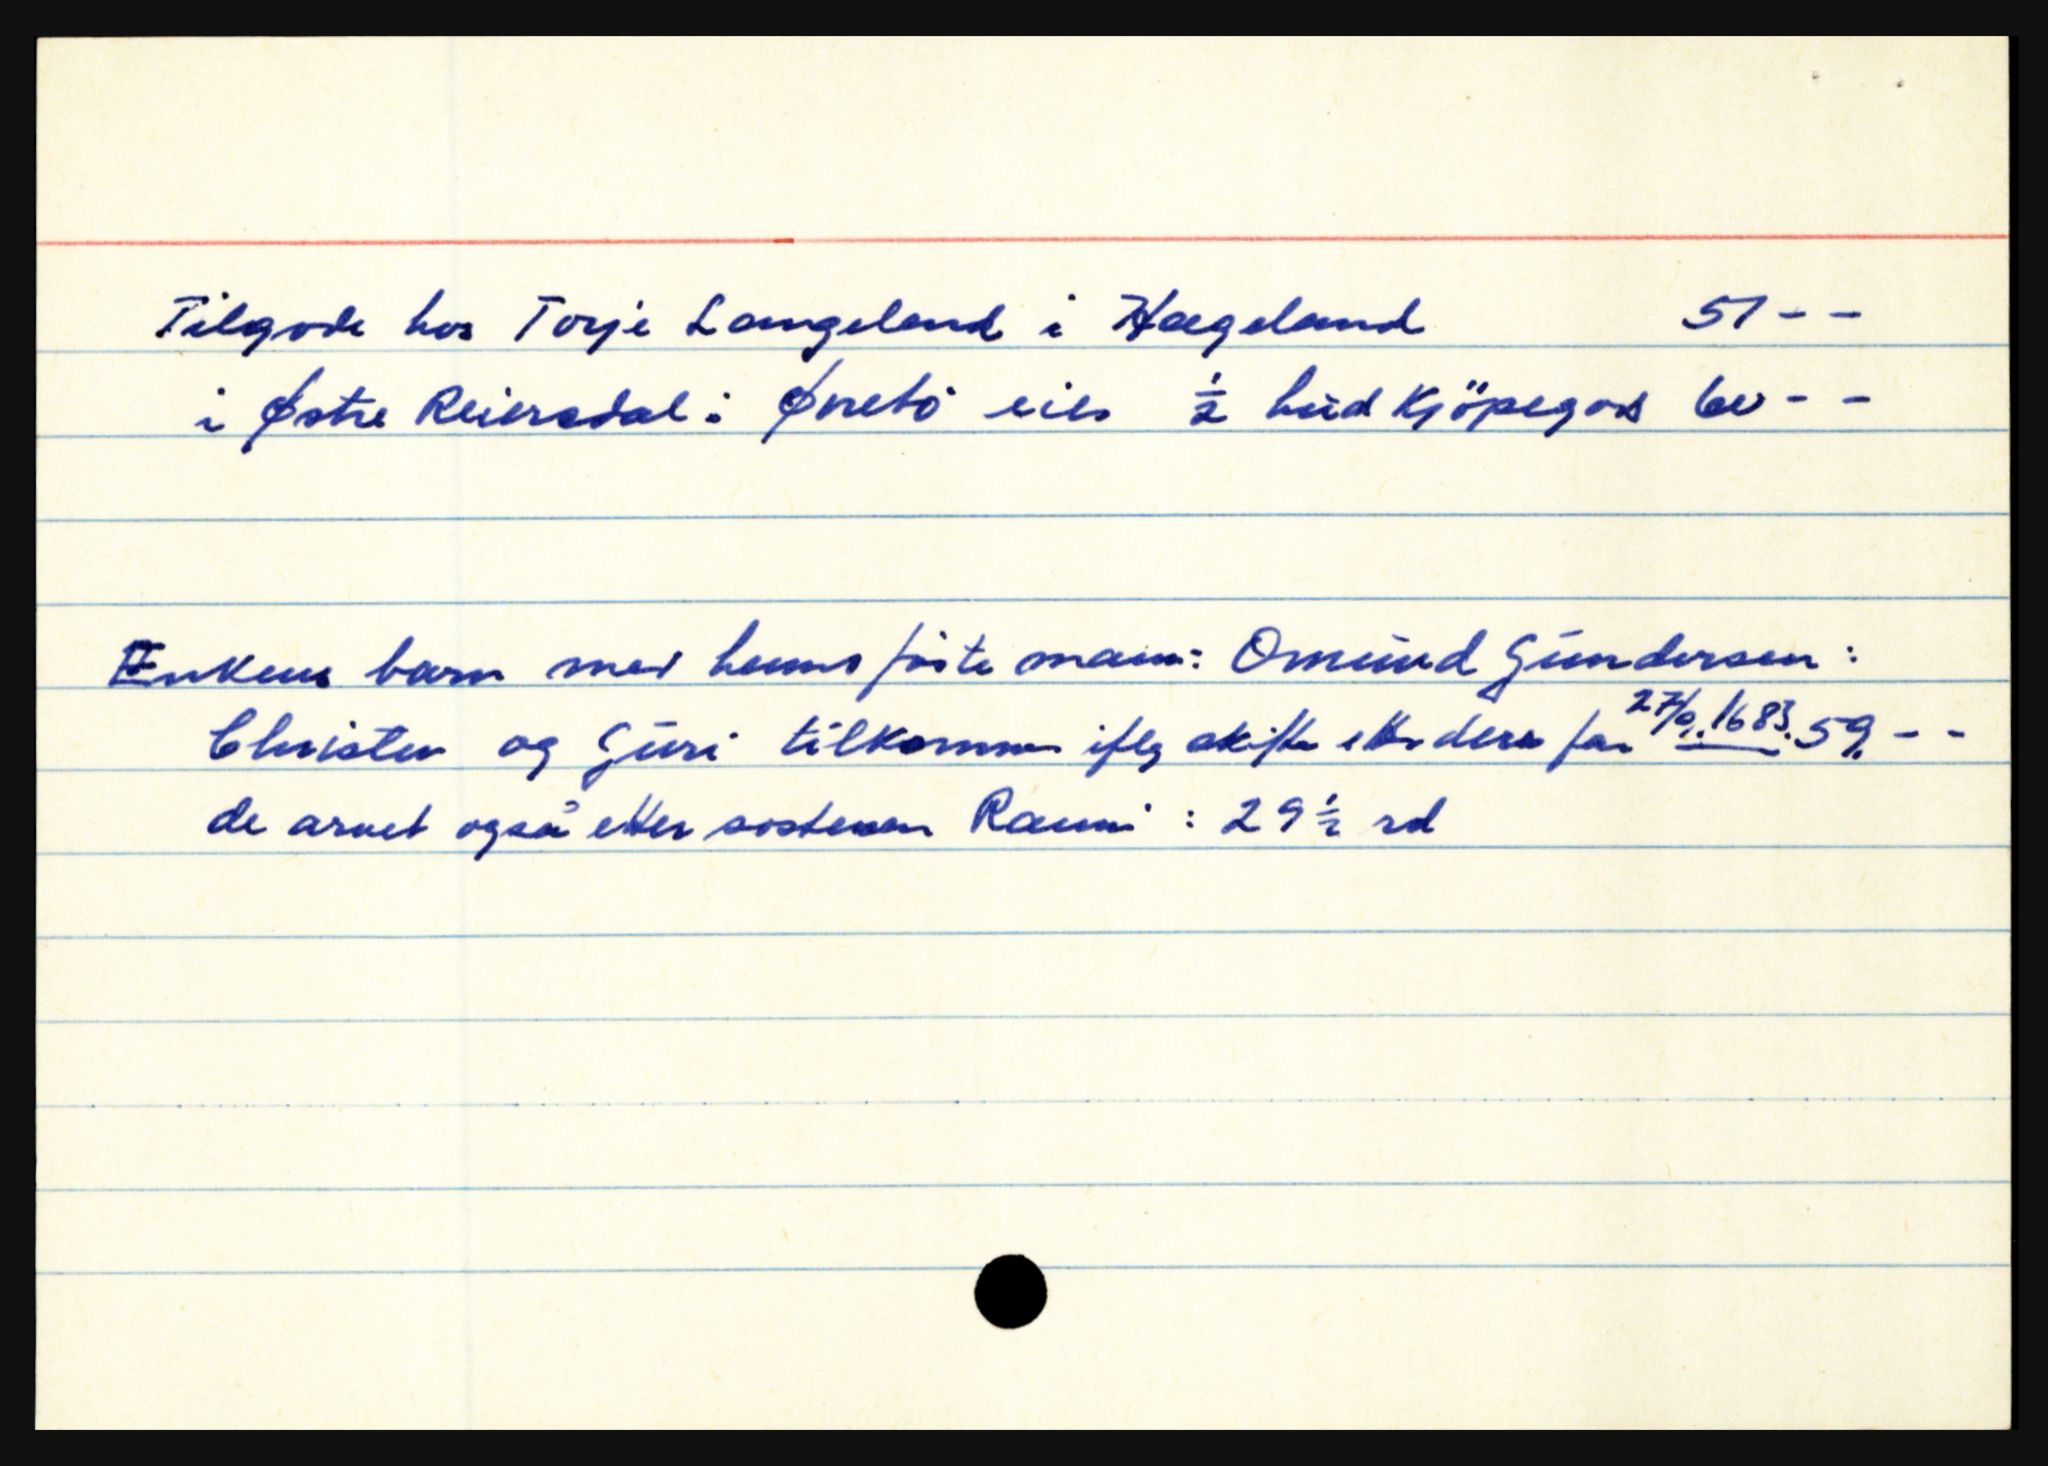 Tilgode hos Torje Langeland i Hægeland 51 - -
i Østre Reiersdal i Øvrebö eies 1/2 hud Kjöpegods 60 - -
Enkens barn med hennes første mann: Omund Gundersen:
Christen og Guri tilkommer iflg skifte etter deres far 1683. 59 - -
de arvet også etter søsteren Ranni: 29 1/2 rd